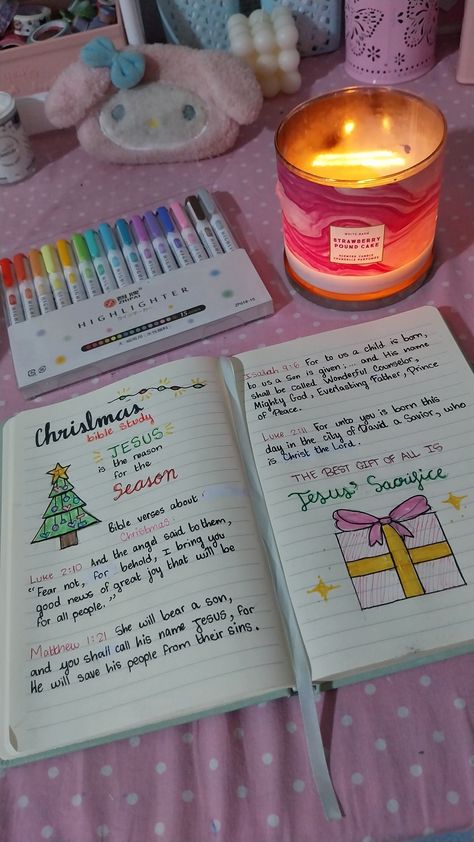 WHITE BARN
STRAWBERRY
POUND CAKE
SCENTED CANDLE
HIGHLIGHTER
ZP018-15
Christmas
bible study
JESUS
is the reason
for the
Season
Bible verses about
Christmas:
Luke 2:10 And the angel said to them,
"Fear not, for behold, I bring you
good news of great joy that will be
for all people."
Matthew 1:21 She will bear a son,
and you shall call his name JESUS, for
He will save his people from their sins.
Isaiah 9:6 For to us a child is born,
to us a Son is given; ... and His name
shall be Called Wonderful Counselor,
Mighty God, Everlasting Father, Prince
of Peace.
Luke 2:11 For unto you is born this
day in the city of David a Savior, who
is Christ the Lord.
THE BEST GIFT OF ALL IS
Jesus' Sacrifice